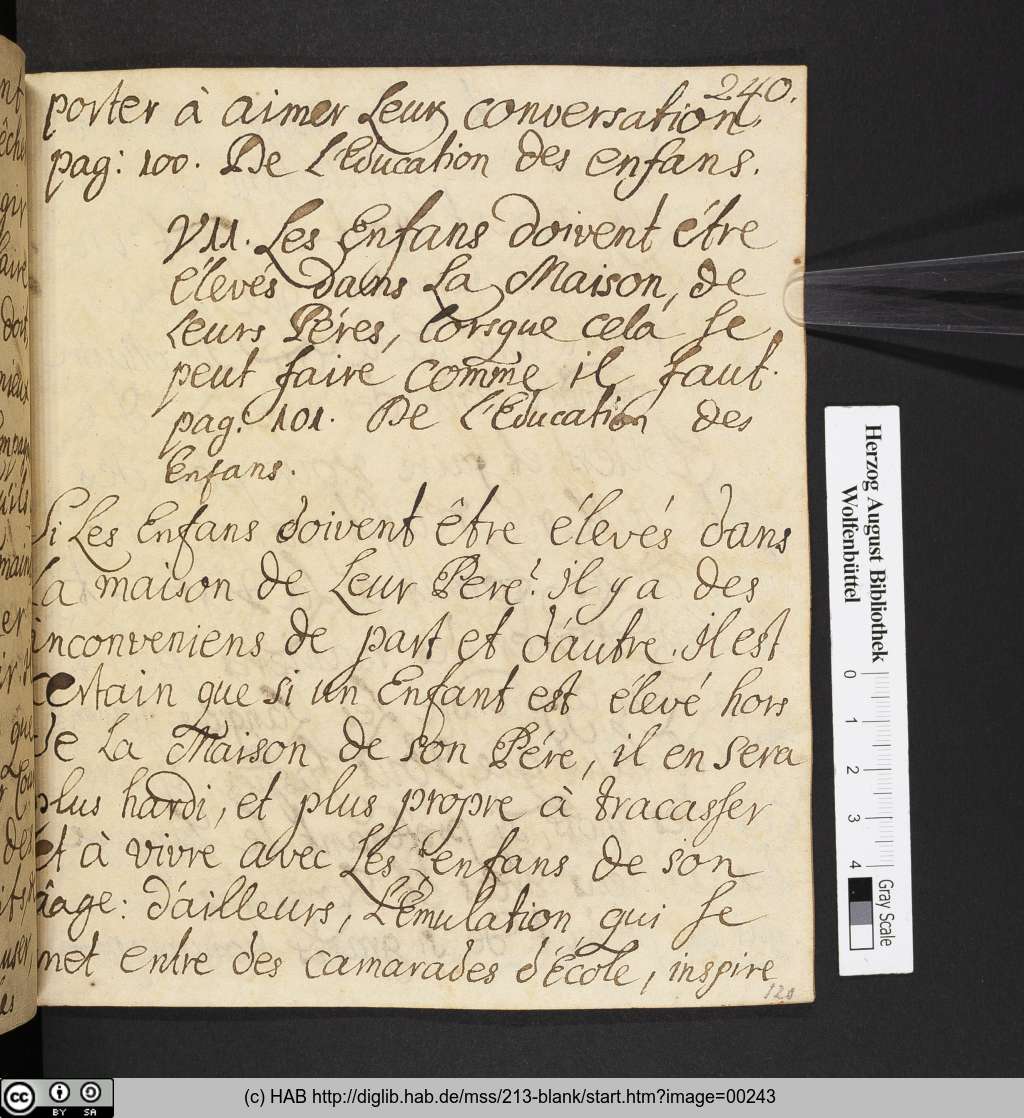 240.
porter à aimer Leur conversation.
pag: 100. De L'Education des enfans.
VII. Les Enfans doivent étre
élevés dans La Maison, de
Leurs Péres, lorsque cela se
peut faire comme il faut.
pag: 101. De L'Education des
Enfans.
Si Les Enfans doivent être élevés dans
La maison de Leur Pere? il y a des
inconveniens de part et d'autre. il est
certain que si un Enfant est élevé hors
de La Maison de son Pére, il en sera
plus hardi, et plus propre à tracasser
et à vivre avec Les enfans de son
âage: d'ailleurs, L'Emulation, qui se
met entre des camarades d'École, inspire
120
Herzog August Bibliothek
Wolfenbüttel
0 1 2 3 4
Gray Scale
cc BY SA
(c) HAB http://diglib.hab.de/mss/213-blank/start.htm?image=00243